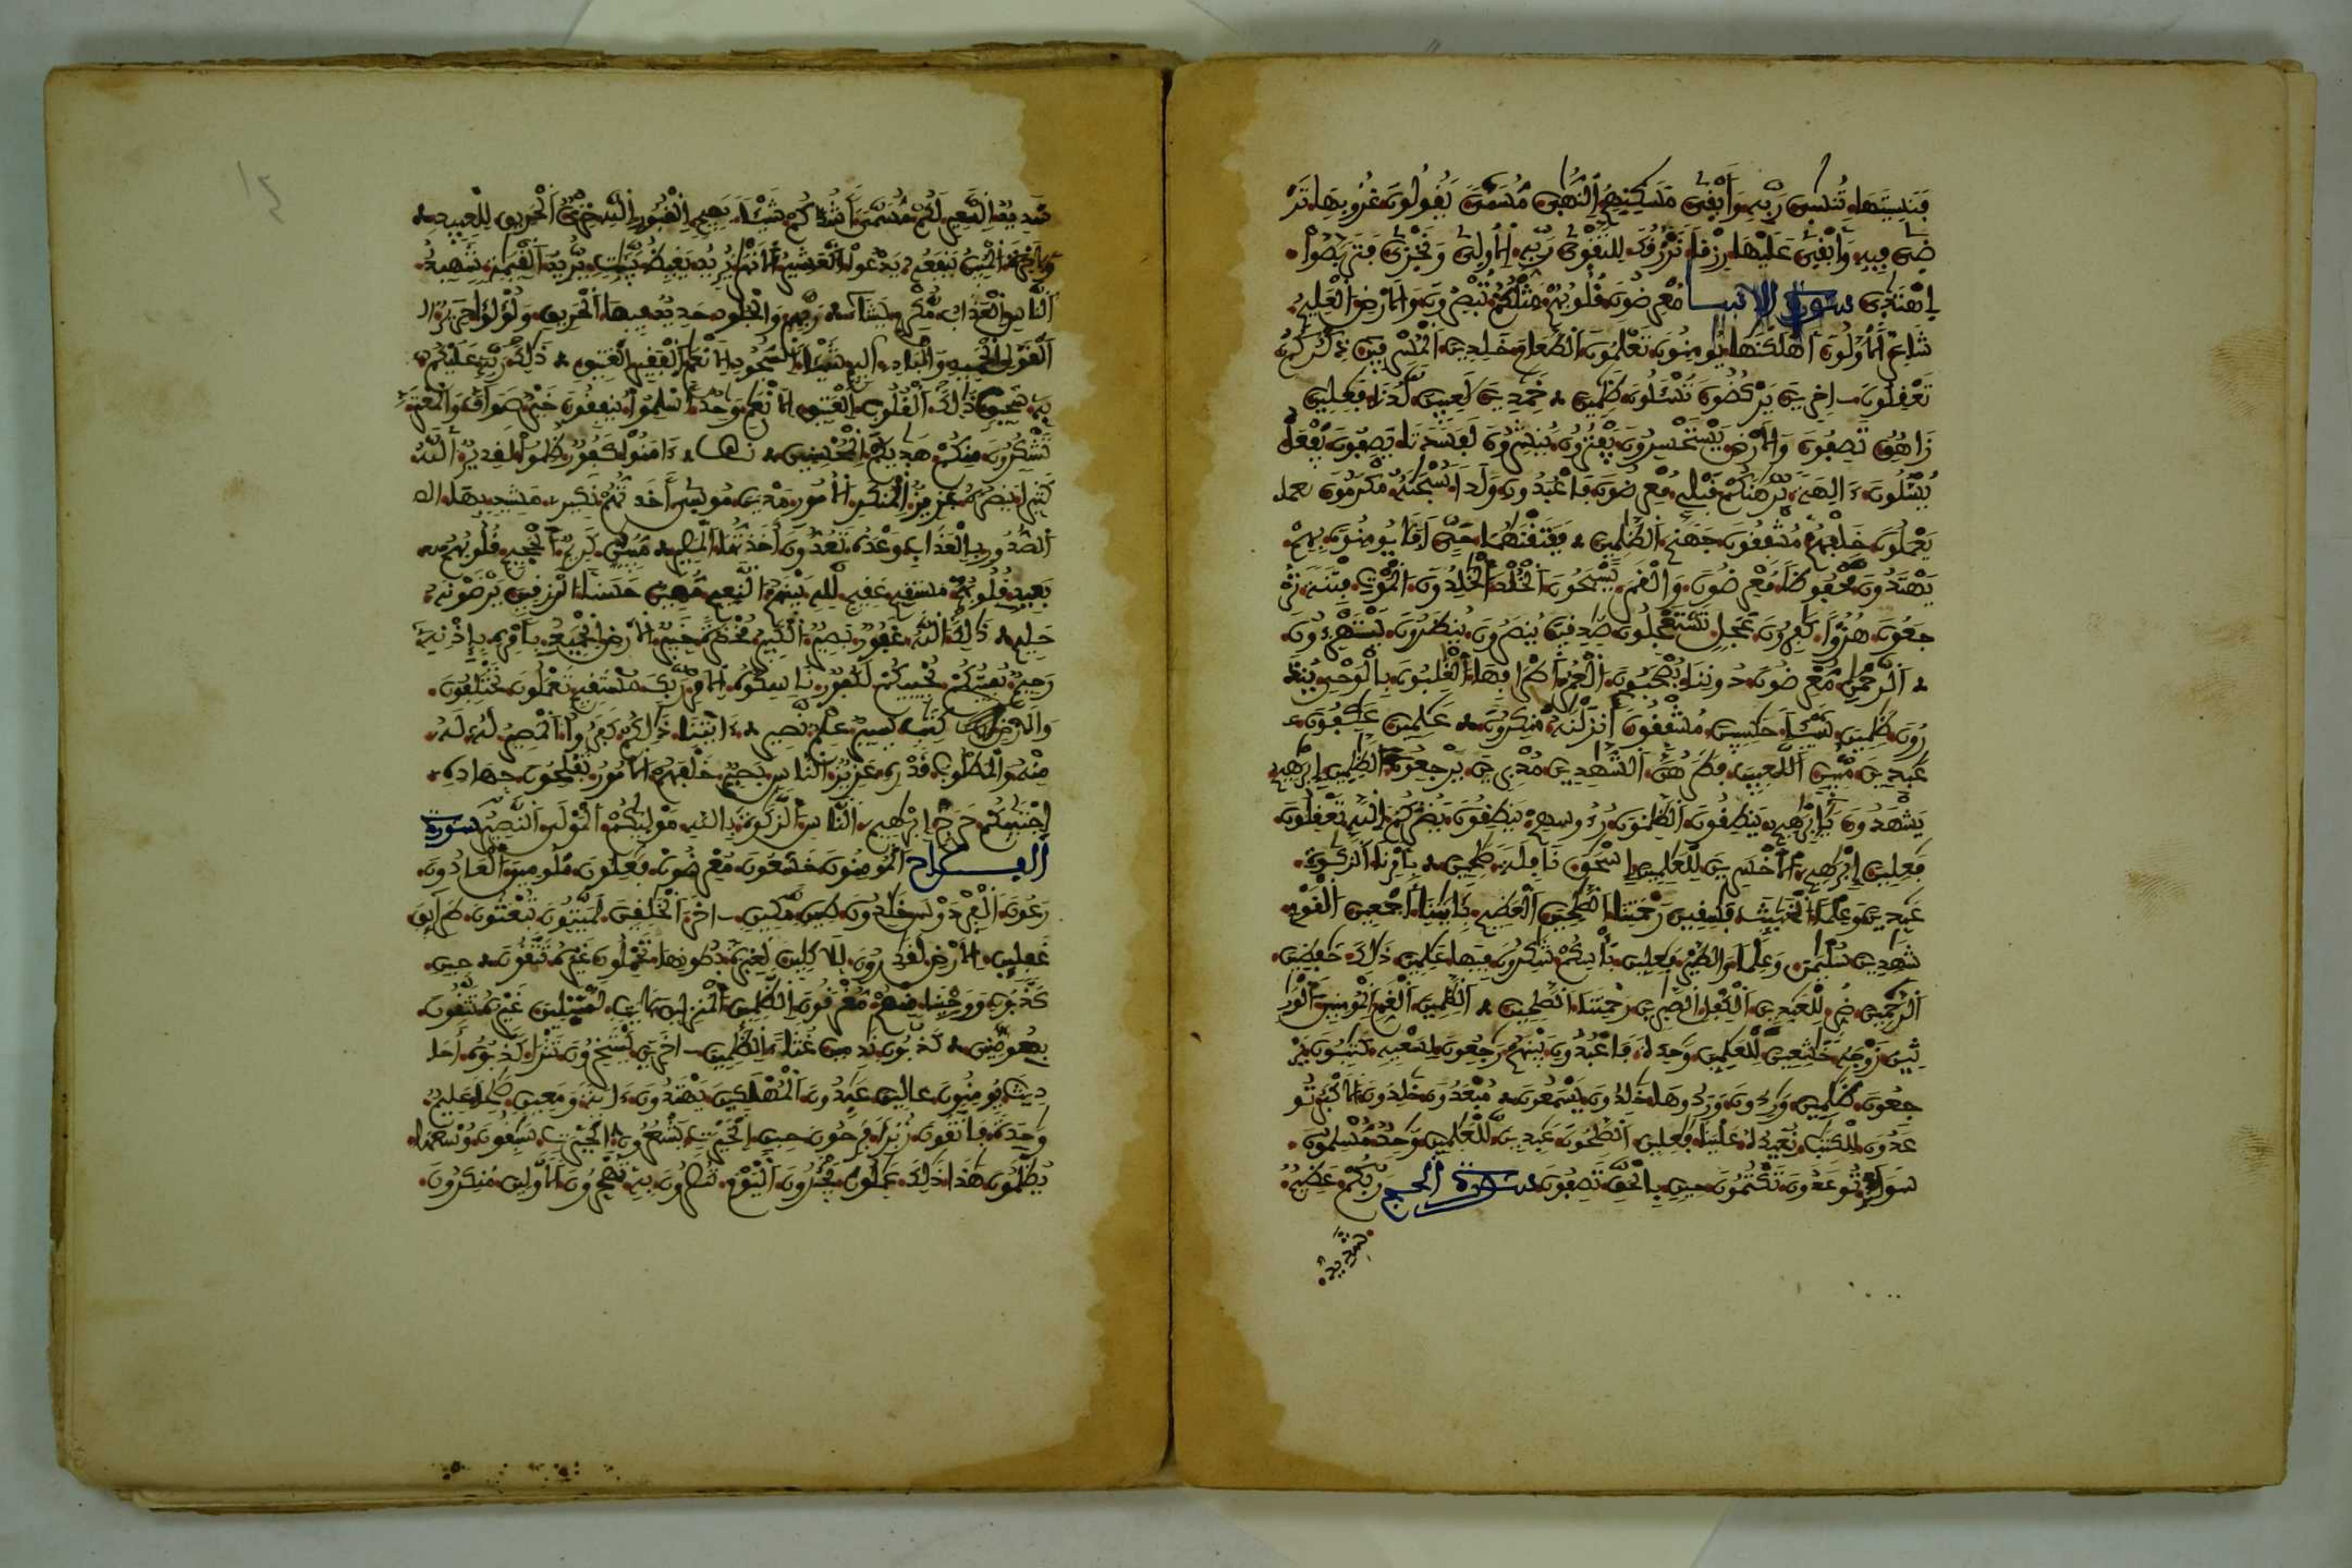 فنسيتها تنسى ربه وأبقى مسكنهم النهى مسمى يقولون غروبها تر
ضى فيه وأبقى عليها رزقا نرزقك للتقوى ربه الأولى ونخزى فتربصوا
اهتدى سورة الانبيا معرضون قلوبهم مثلكم تبصرون والارض العليم
شاعر الاولون أهلكنها يومنون تعلمون الطعام خلدين المسرفين ذكركم
تعقلون اخرين يركضون تسئلون ظلمين خمدين لعبين لدنا فعلين
زاهق تصفون والارض يستحسرون يفترون ينشرون لفسدتا يصفون يفعل
يسئلون ءالهة برهنكم قبلي معرضون فاعبدون ولدا سبحنه مكرمون يعملـ
يعملون خلفهم مشفقون جهنم الظلمين ففتقنهما حي افلا يومنون بهم
يهتدون محفوظا معرضون والقمر يسبحون الخلد الخلدون الموت فتنة تر
جعون هزؤا كفرون عجل تستعجلون صدقين ينصرون ينظرون يستهزءون
الرحمن معرضون دوننا يصحبون العمر اطرافها الغلبون بالوحي ينذ
رون ظلمين شيئا حسبين مشفقون أنزلنه منكرون علمين عكفون
عبدين مبين اللعبين فطرهن الشهدين مدبرين يرجعون الظلمين ابرهيم
يشهدون يابرهيم ينطقون الظلمون رءوسهم ينطقون يضركم الله تعقلون
فعلين ابرهيم الاخسرين للعلمين اسحق نافلة صلحين بأمرنا الزكوة
عبدين وعلما الخبئث فسقين رحمتنا الصلحين العظيم بايتنا أجمعين القوم
شهدين سليمن وعلما والطير فعلين بأسكم شكرون فيها علمين ذلك حفظين
الرحمين ضر للعبدين الكفل الصبرين رحمتنا الصلحين الظلمين الغم المومنين الور
ثين زوجه خشعين للعلمين وحدة فاعبدون بينهم رجعون لسعيه كتبون ير
جعون ظلمين وردون وردوها خلدون يسمعون مبعدون خلدون الاكبر تو
عدون للكتب نعيده علينا فعلين الصلحون عبدين للعلمين وحد مسلمون
سواء توعدون تكتمون حين بالحق تصفون سورة الحج ربكم عظيم
شديد
شديد السعير لكم مسمى أشدكم شيئا بهيج القبور الله خزي الحريق للعبيد
والاخرة المبين ينفعه يدعوا العشير الانهر يريد يغيظ بينت يريد القيمة شهيد
الناس العذاب مكرم يشاء ربهم والجلود حديد فيها الحريق ولؤلؤا حرير
القول الحميد والباد اليم شيئا السجود الانعم الفقير العتيق ذلك ربه عليكم
به سحيق ذلك القلوب العتيق الانعم وحد اسلموا ينفقون خير صواف والمعتر
تشكرون منكم هديكم المحسنين ءامنوا كفور ظلموا لقدير الله
كثيرا ينصره عزيز المنكر الامور مدين موسى أخذتهم نكير مشيد بها
الصدور بالعذاب وعده تعدون أخذتها المصير مبين كريم الجحيم قلوبهم
بعيد قلوبهم مستقيم عقيم لله بينهم النعيم مهين حسنا الرزقين يرضونه
حليم ذلك الله غفور بصير الكبير مخضرة خبير الارض الجميع بأمره بإذنه
رحيم يميتكم يحييكم لكفور ناسكوه الامر ربك مستقيم تعملون تختلفون
والارض كتب يسير علم نصير ءايتنا ذلكم كفروا المصير له له
منه والمطلوب قدره عزيز الناس بصير خلفهم الامور تفلحون جهاده
اجتبيكم حرج ابرهيم الناس الزكوة بالله موليكم المولى النصير سورة
المومنون خشعون معرضون فعلون ملومين العادون
رعون الفردوس خلدون طين مكين اخر الخلقين لميتون تبعثون طرائق
غفلين الارض لقدرون للاكلين لعبرة بطونها تحملون غيره تتقون حين
كذبون ووحينا منهم مغرقون الظلمين المنزلين لايت لمبتلين غيره تتقون
كذبون ندمين غثاء الظلمين اخرين يستخرون تترا كذبوه احا
ديث يومنون عالين عبدون المهلكين يهتدون ءاية ومعين صلحا عليم
وحدة فاتقون زبرا فرحون حين الخيرت يشعرون الخيرت سبقون وسعها
يظلمون هذا ذلك عملون يجئرون اليوم تنصرون به تهجرون الاولين منكرون